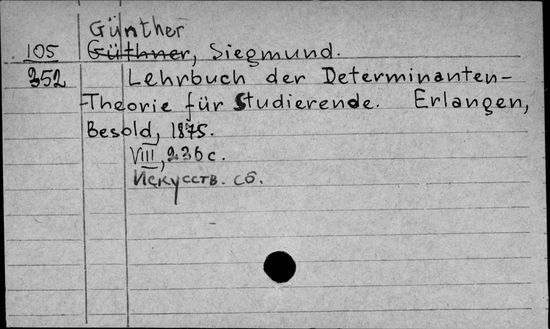 Günther
105 Güthner, Siegmund.
352 Lehrbuch der Determinanten-
Theorie für Studierende. Erlangen,
Besold, 1875.
VIII, 236 с.
Искусств. сб.